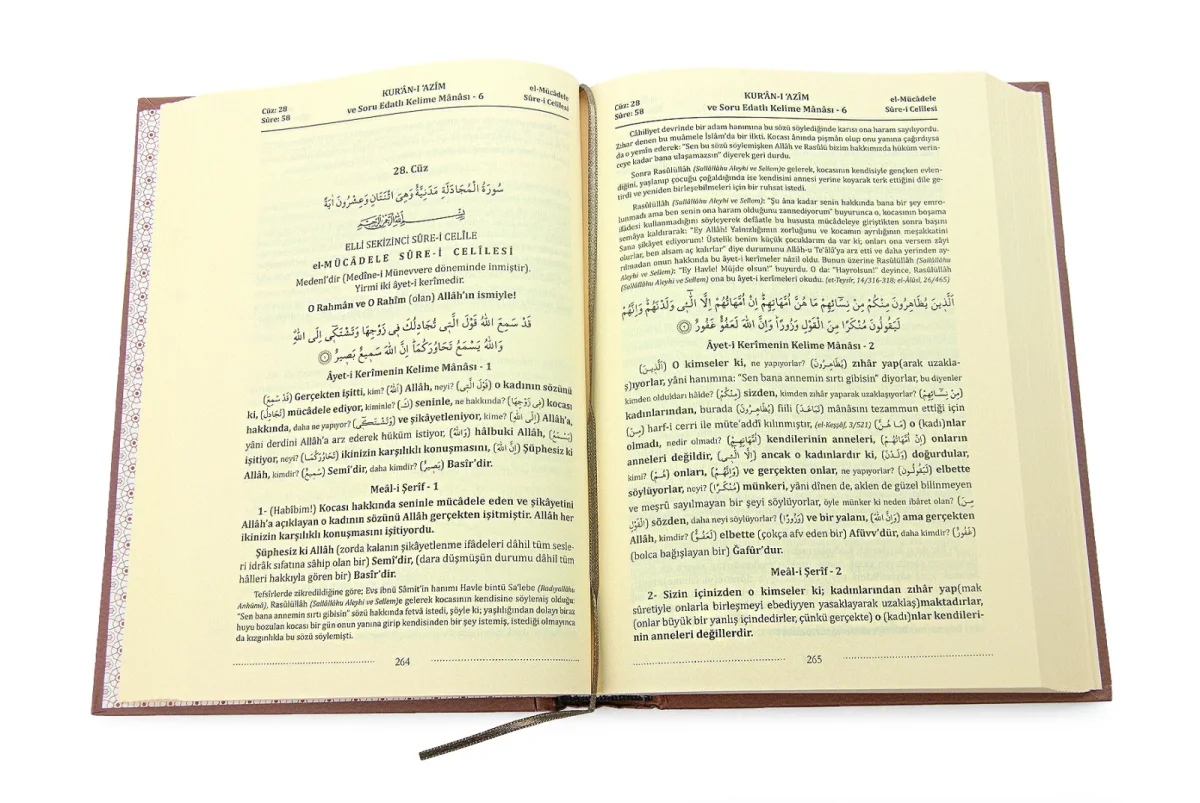 Cüz: 28
Sûre: 58
KUR'ÂN-I 'AZÎM
ve Soru Edatlı Kelime Mânâsı - 6
el-Mücâdele
Sûre-i Celîlesi
28. Cüz
سُورَةُ الْمُجَادَلَةِ مَدَنِيَّةٌ وَهِيَ اثْنَتَانِ وَعِشْرُونَ اٰيَةً
بِسْــــمِ اللّٰهِ الرَّحْمٰنِ الرَّحِيمِ
ELLİ SEKİZİNCİ SÛRE-İ CELÎLE
el-MÜCÂDELE SÛRE-İ CELÎLESİ
Medenî'dir (Medîne-i Münevvere döneminde inmiştir).
Yirmi iki âyet-i kerîmedir.
O Rahmân ve O Rahîm (olan) Allâh'ın ismiyle!
قَدْ سَمِعَ اللّٰهُ قَوْلَ الَّتٖي تُجَادِلُكَ فٖي زَوْجِهَا وَتَشْتَكٖٓي اِلَى اللّٰهِ
وَاللّٰهُ يَسْمَعُ تَحَاوُرَكُمَا اِنَّ اللّٰهَ سَمٖيعٌ بَصٖيرٌ ﴿١﴾
Âyet-i Kerîmenin Kelime Mânâsı - 1
(قَدْ سَمِعَ) Gerçekten işitti, kim? (اَللّٰهُ) Allâh, neyi? (قَوْلَ الَّتٖي) o kadının sözünü
ki, (تُجَادِلُ) mücâdele ediyor, kiminle? (كَ) seninle, ne hakkında? (فٖي زَوْجِهَا) kocası
hakkında, daha ne yapıyor? (وَتَشْتَكٖٓي) ve şikâyetleniyor, kime? (اِلَى اللّٰهِ) Allâh'a,
yâni derdini Allâh'a arz ederek hüküm istiyor, (وَاللّٰهُ) hâlbuki Allâh, (يَسْمَعُ)
işitiyor, neyi? (تَحَاوُرَكُمَا) ikinizin karşılıklı konuşmasını, (اِنَّ اللّٰهَ) Şüphesiz ki
Allâh, kimdir? (سَمٖيعٌ) Semî'dir, daha kimdir? (بَصٖيرٌ) Basîr'dir.
Meâl-i Şerîf - 1
1- (Habîbim!) Kocası hakkında seninle mücâdele eden ve şikâyetini
Allâh'a açıklayan o kadının sözünü Allâh gerçekten işitmiştir. Allâh her
ikinizin karşılıklı konuşmasını işitiyordu.
Şüphesiz ki Allâh (zorda kalanın şikâyetlenme ifâdeleri dâhil tüm sesle-
ri idrâk sıfatına sâhip olan bir) Semî'dir, (dara düşmüşün durumu dâhil tüm
hâlleri hakkıyla gören bir) Basîr'dir.
Tefsîrlerde zikredildiğine göre; Evs ibnu Sâmit'in hanımı Havle bintü Sa'lebe (Radıyallâhu
Anhümâ), Rasûlüllâh (Sallâllâhu Aleyhi ve Sellem)e gelerek kocasının kendisine söylemiş olduğu:
"Sen bana annemin sırtı gibisin" sözü hakkında fetvâ istedi, şöyle ki; yaşlılığından dolayı biraz
huyu bozulan kocası bir gün onun yanına girip kendisinden bir şey istemiş, istediği olmayınca
da kızgınlıkla bu sözü söylemişti.
264
Cüz: 28
Sûre: 58
KUR'ÂN-I 'AZÎM
ve Soru Edatlı Kelime Mânâsı - 6
el-Mücâdele
Sûre-i Celîlesi
Câhiliyet devrinde bir adam hanımına bu sözü söylediğinde karısı ona haram sayılıyordu.
Zıhar denen bu muâmele İslâm'da bir ilkti. Kocası ânında pişmân olup onu yanına çağırdıysa
da o yemîn ederek: "Sen bu sözü söylemişken Allâh ve Rasûlü bizim hakkımızda hüküm verin-
ceye kadar bana ulaşamazsın" diyerek geri durdu.
Sonra Rasûlüllâh (Sallâllâhu Aleyhi ve Sellem)e gelerek, kocasının kendisiyle gençken evlen-
diğini, yaşlanıp çocuğu çoğaldığında ise kendisini annesi yerine koyarak terk ettiğini dile ge-
tirdi ve yeniden birleşebilmeleri için bir ruhsat istedi.
Rasûlüllâh (Sallâllâhu Aleyhi ve Sellem): "Şu âna kadar senin hakkında bana bir şey emro-
lunmadı ama ben senin ona haram olduğunu zannediyorum" buyurunca o, kocasının boşama
ifâdesi kullanmadığını söyleyerek defâatle bu hususta mücâdeleye giriştikten sonra başını
semâya kaldırarak: "Ey Allâh! Yalnızlığımın zorluğunu ve kocamın ayrılığının meşakkatini
Sana şikâyet ediyorum! Üstelik benim küçük çocuklarım da var ki; onları ona versem zâyi
olurlar, ben alsam aç kalırlar" diye durumunu Allâh-u Te'âlâ'ya arz etti ve daha yerinden ay-
rılmadan onun hakkında bu âyet-i kerîmeler nâzil oldu. Bunun üzerine Rasûlüllâh (Sallâllâhu
Aleyhi ve Sellem): "Ey Havle! Müjde olsun!" buyurdu. O da: "Hayrolsun!" deyince, Rasûlüllâh
(Sallâllâhu Aleyhi ve Sellem) ona bu âyet-i kerîmeleri okudu. (et-Teysîr, 14/316-318; el-Âlûsî, 26/465)
اَلَّذٖينَ يُظَاهِرُونَ مِنْكُمْ مِنْ نِسَٓائِهِمْ مَا هُنَّ اُمَّهَاتِهِمْ اِنْ اُمَّهَاتُهُمْ اِلَّا الّٰٓئٖي وَلَدْنَهُمْ وَاِنَّهُمْ
لَيَقُولُونَ مُنْكَرًا مِنَ الْقَوْلِ وَزُورًا وَاِنَّ اللّٰهَ لَعَفُوٌّ غَفُورٌ ﴿٢﴾
Âyet-i Kerîmenin Kelime Mânâsı - 2
(اَلَّذٖينَ) O kimseler ki, ne yapıyorlar? (يُظَاهِرُونَ) zıhâr yap(arak uzakla-
ş)ıyorlar, yâni hanımına: "Sen bana annemin sırtı gibisin" diyorlar, bu diyenler
kimden oldukları hâlde? (مِنْكُمْ) sizden, kimden zıhâr yaparak uzaklaşıyorlar? (مِنْ نِسَٓائِهِمْ)
kadınlarından, burada (يُظَاهِرُونَ) fiili (تَبَاعَدَ) mânâsını tezammun ettiği için
(مِنْ) harf-i cerri ile müte'addî kılınmıştır, (el-Keşşâf, 3/521) (مَا هُنَّ) o (kadı)nlar
olmadı, nedir olmadı? (اُمَّهَاتِهِمْ) kendilerinin anneleri, (اِنْ اُمَّهَاتُهُمْ) onların
anneleri değildir, (اِلَّا الّٰٓئٖي) ancak o kadınlardır ki, (وَلَدْنَ) doğurdular,
kimi? (هُمْ) onları, (وَاِنَّهُمْ) ve gerçekten onlar, ne yapıyorlar? (لَيَقُولُونَ) elbette
söylüyorlar, neyi? (مُنْكَرًا) münkeri, yâni dînen de, aklen de güzel bilinmeyen
ve meşrû sayılmayan bir şeyi söylüyorlar, öyle münker ki neden ibâret olan? (مِنَ
الْقَوْلِ) sözden, daha neyi söylüyorlar? (وَزُورًا) ve bir yalanı, (وَاِنَّ اللّٰهَ) ama gerçekten
Allâh, kimdir? (لَعَفُوٌّ) elbette (çokça afv eden bir) Afüvv'dür, daha kimdir? (غَفُورٌ)
(bolca bağışlayan bir) Ğafûr'dur.
Meâl-i Şerîf - 2
2- Sizin içinizden o kimseler ki; kadınlarından zıhâr yap(mak
sûretiyle onlarla birleşmeyi ebediyyen yasaklayarak uzaklaş)maktadırlar,
(onlar büyük bir yanlış içindedirler, çünkü gerçekte) o (kadı)nlar kendileri-
nin anneleri değillerdir.
265